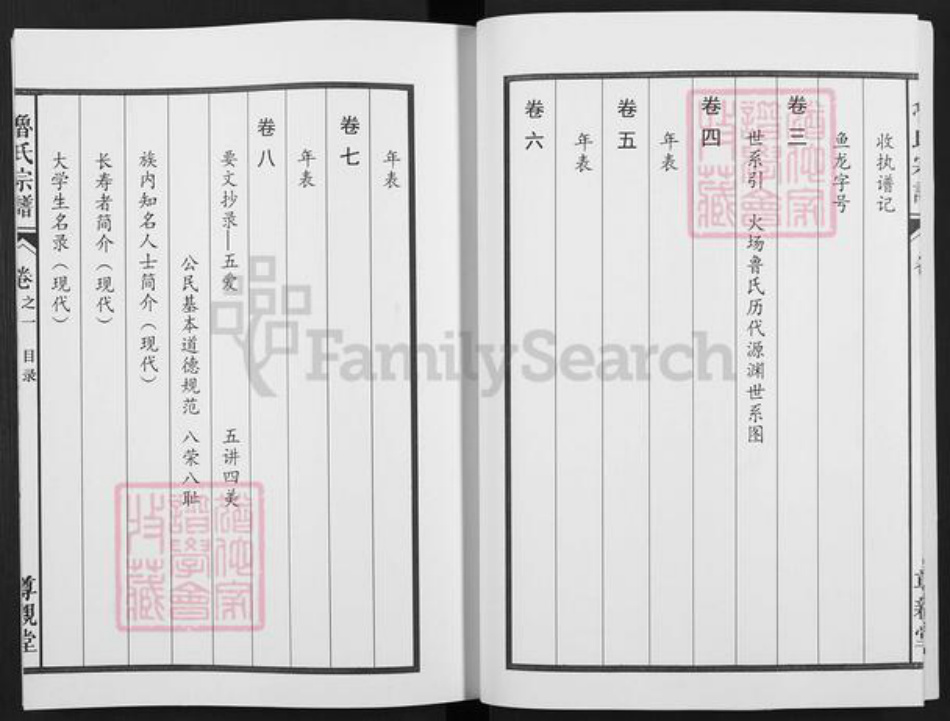 收执谱记
鱼龙字号
卷三
世系引 火场鲁氏历代源渊世系图
卷四
年表
卷五
年表
卷六
年表
卷七
年表
卷八
要文抄录—五爱 五讲四美
公民基本道德规范 八荣八耻
族内知名人士简介（现代）
长寿者简介（现代）
大学生名录（现代）
魯氏宗譜
卷之一 目录
尊親堂
FamilySearch